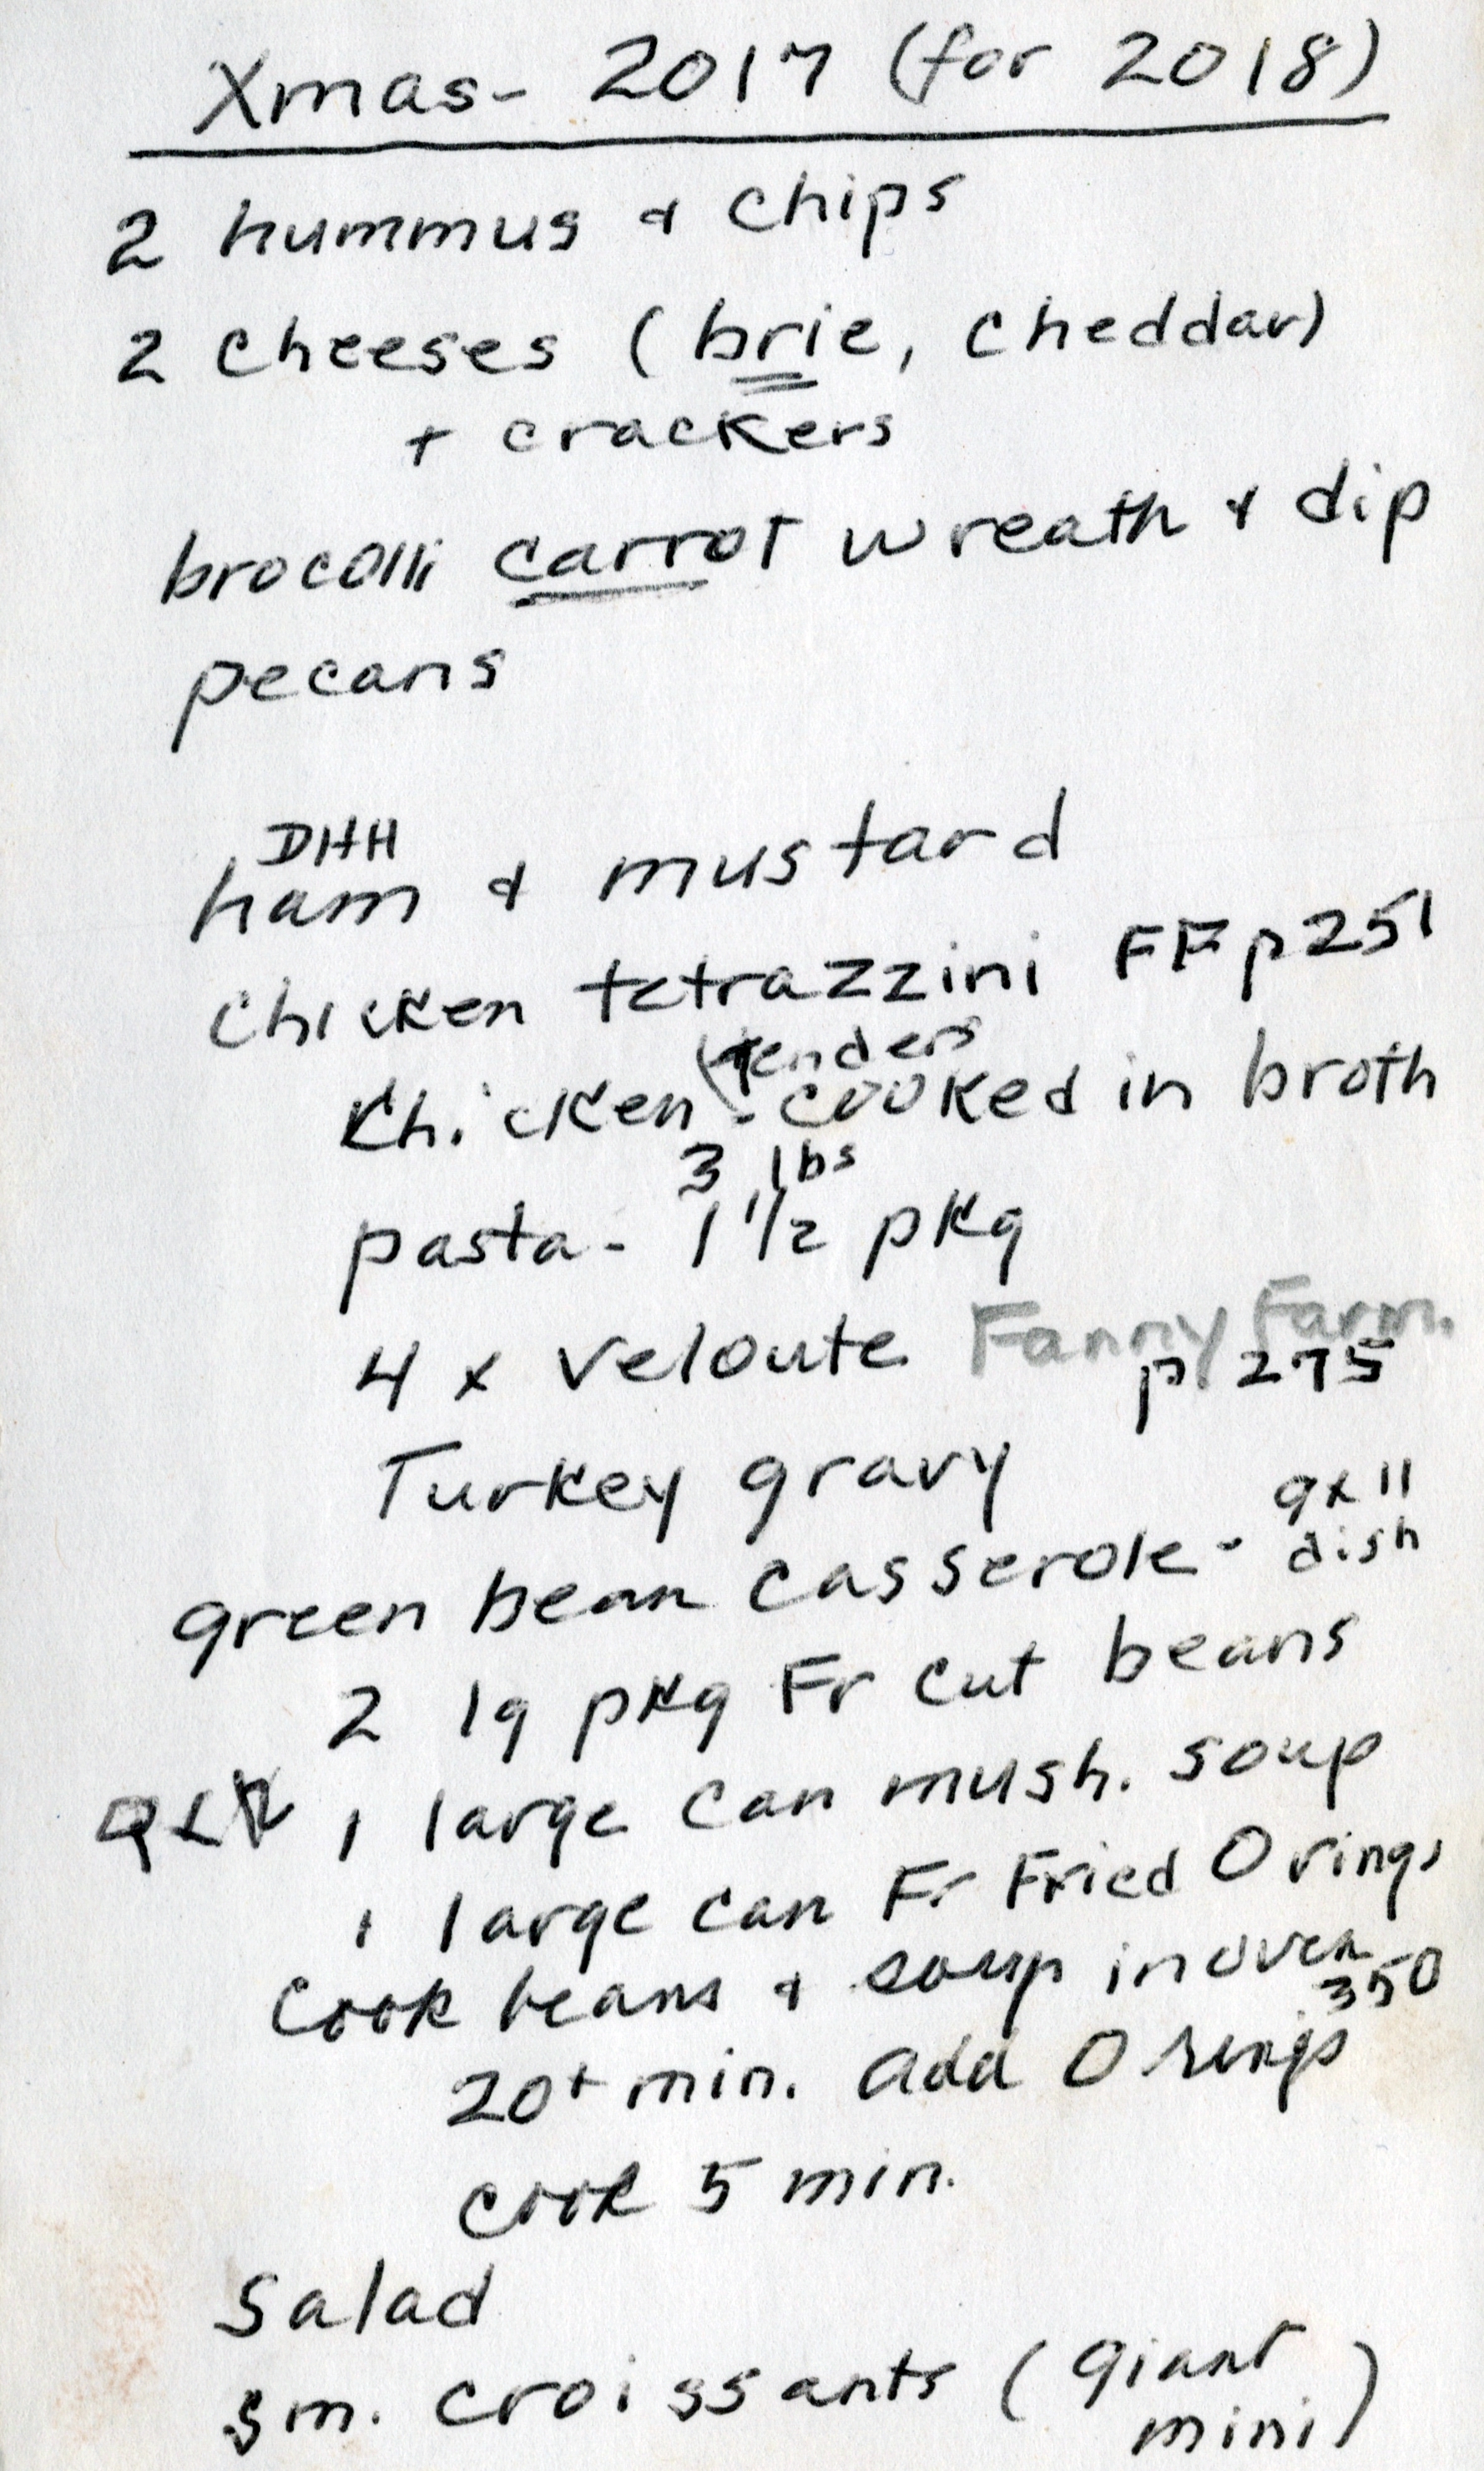 Xmas- 2017 (for 2018)
2 hummus & chips
2 cheeses (brie, cheddar)
+ crackers
brocolli carrot wreath & dip
pecans
DHH
ham & mustard
chicken tetrazzini FF p 251
(tenders
Chicken - cooked in broth
3 lbs
pasta - 1 1/2 pkg
4 x veloute Fanny Farm.
p. 275
Turkey gravy
9x11
green bean casserole - dish
2 lg pkg Fr cut beans
1 large can mush. soup
1 large can Fr Fried O rings
cook beans & soup in oven
350
20+ min. add O rings
cook 5 min.
Salad
sm. croissants (giant
mini)